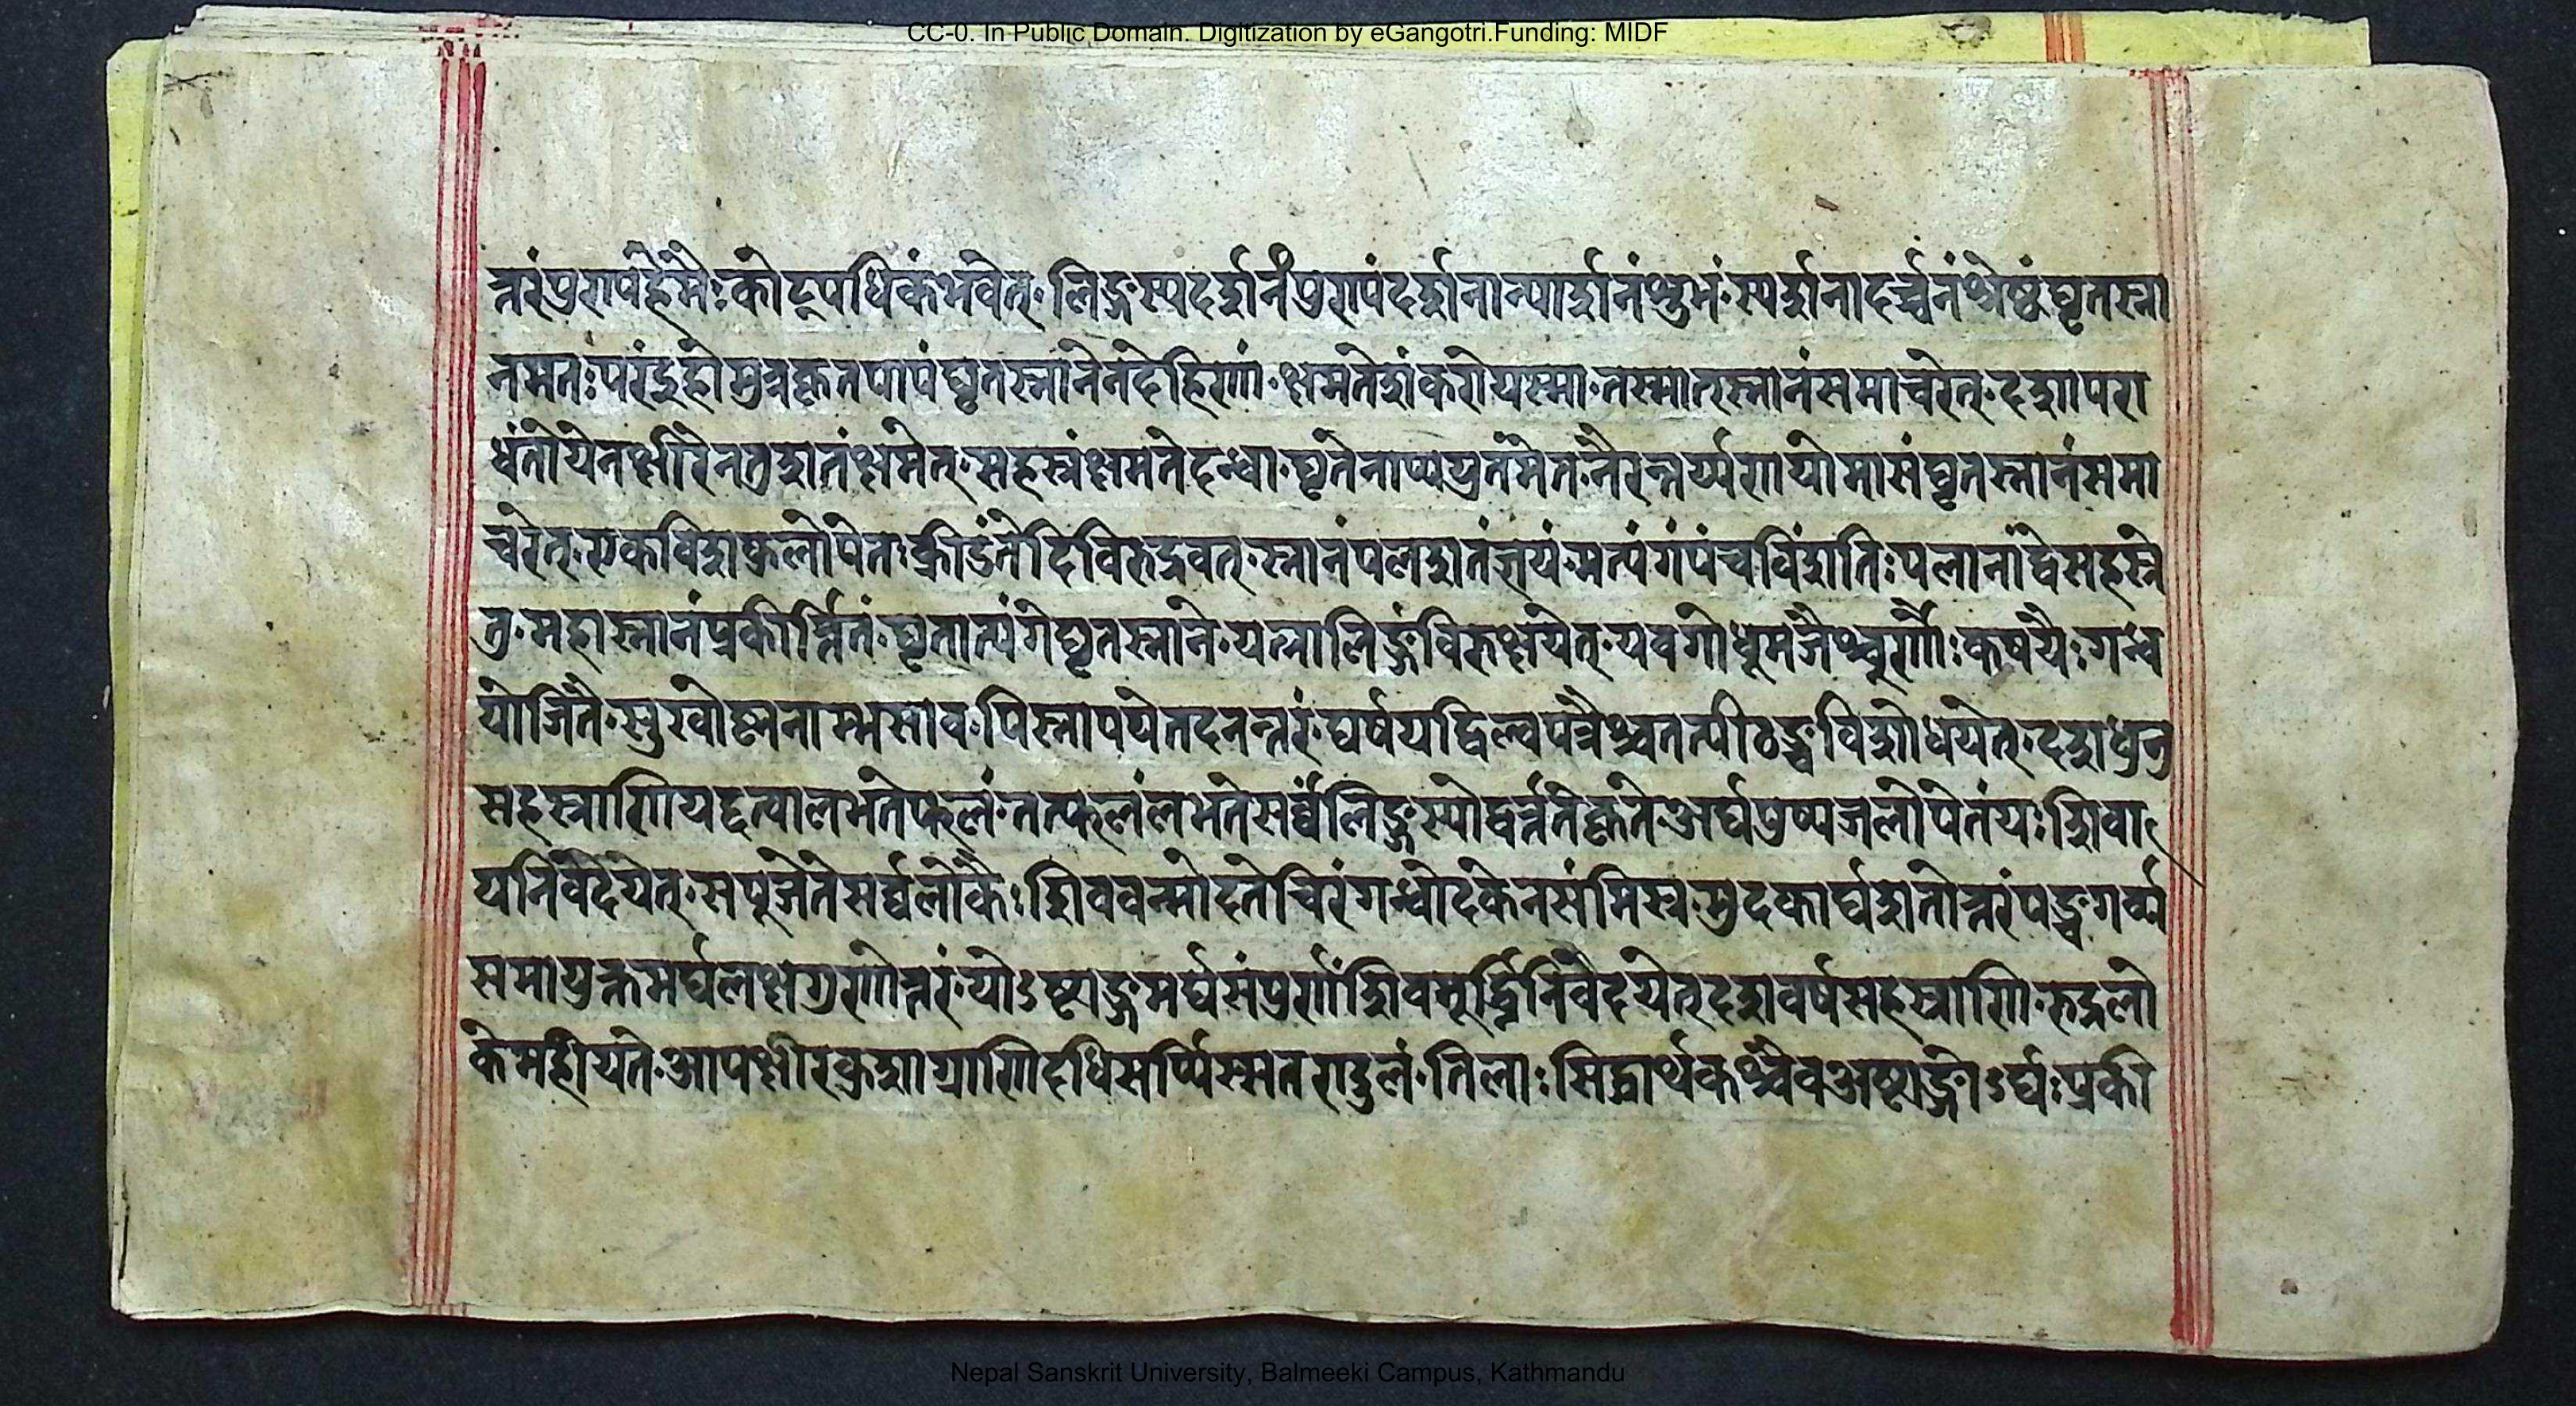 CC-0. In Public Domain. Digitization by eGangotri.Funding: MIDF
त्तरंपुरापर्हेमैःकोट्पधिकंभवेत् लिङ्गस्यदर्शनंपुरापंदर्शनान्पार्शनंशुभं स्यर्शनादर्च्चनंश्रेष्ठंघृतस्ना
नमतःपरंइहामुत्रकृतपापंघृतस्नानेनदेहिणां क्षमतेशंकरोयस्मा तस्मातस्नानंसमाचरेत् दशापरा
धंतोयेनक्षीरेनतुशतंक्षमेत् सहस्रंक्षमतेदध्वा घृतेनाप्ययुतंमेत नैरन्तर्य्यणायोमासंघृतस्नानंसमा
चरेत् एकविशफुलोपेत क्रीडंतेदिविरुद्रवत् स्नानंपलशतंज्ञयं मत्पंगंपंचविंशति पलानांद्वेसहस्रे
तु महास्नानंप्रकीर्त्तितं घृतात्यंगेघृतस्नाने यत्नालिङ्गंविरुक्षयेत् यवगोधूमजैश्चुर्णैः कषयैः गन्ध
योजितै सुखोष्णनाम्भसाव पिस्नापयेतदनन्तरं घर्षयद्विल्वपत्रैश्चतत्पीठञ्चविशोधयेत् दशधेनु
सहस्राणियद्दत्पालभतेफलं तत्फलंलभतेसर्व्वंलिङ्गस्योद्वर्त्तनेकृते अर्घपुष्पजलोपेतंयः शिवा
यनिवेदयेत् सपूजेतेसर्व्वलोकैः शिववन्मोदतेचिरं गन्धोदकेनसंमिस्र मुदकार्घशतोत्तरंपञ्चगर्व्य
समायुक्तमर्घलक्षगुणोत्तरं योऽष्टाङ्गमर्घसंपुर्णंशिवमूर्द्ध्निनिवेदयेत् दशवर्षसहस्राणि रुद्रलो
केमहीयते आपक्षीरकुशाग्राणिदधिसर्प्पिस्मतराडुलं तिलाः सिद्धार्थकश्चैवअष्टाङ्गोऽर्घः प्रकी
Nepal Sanskrit University, Balmeeki Campus, Kathmandu